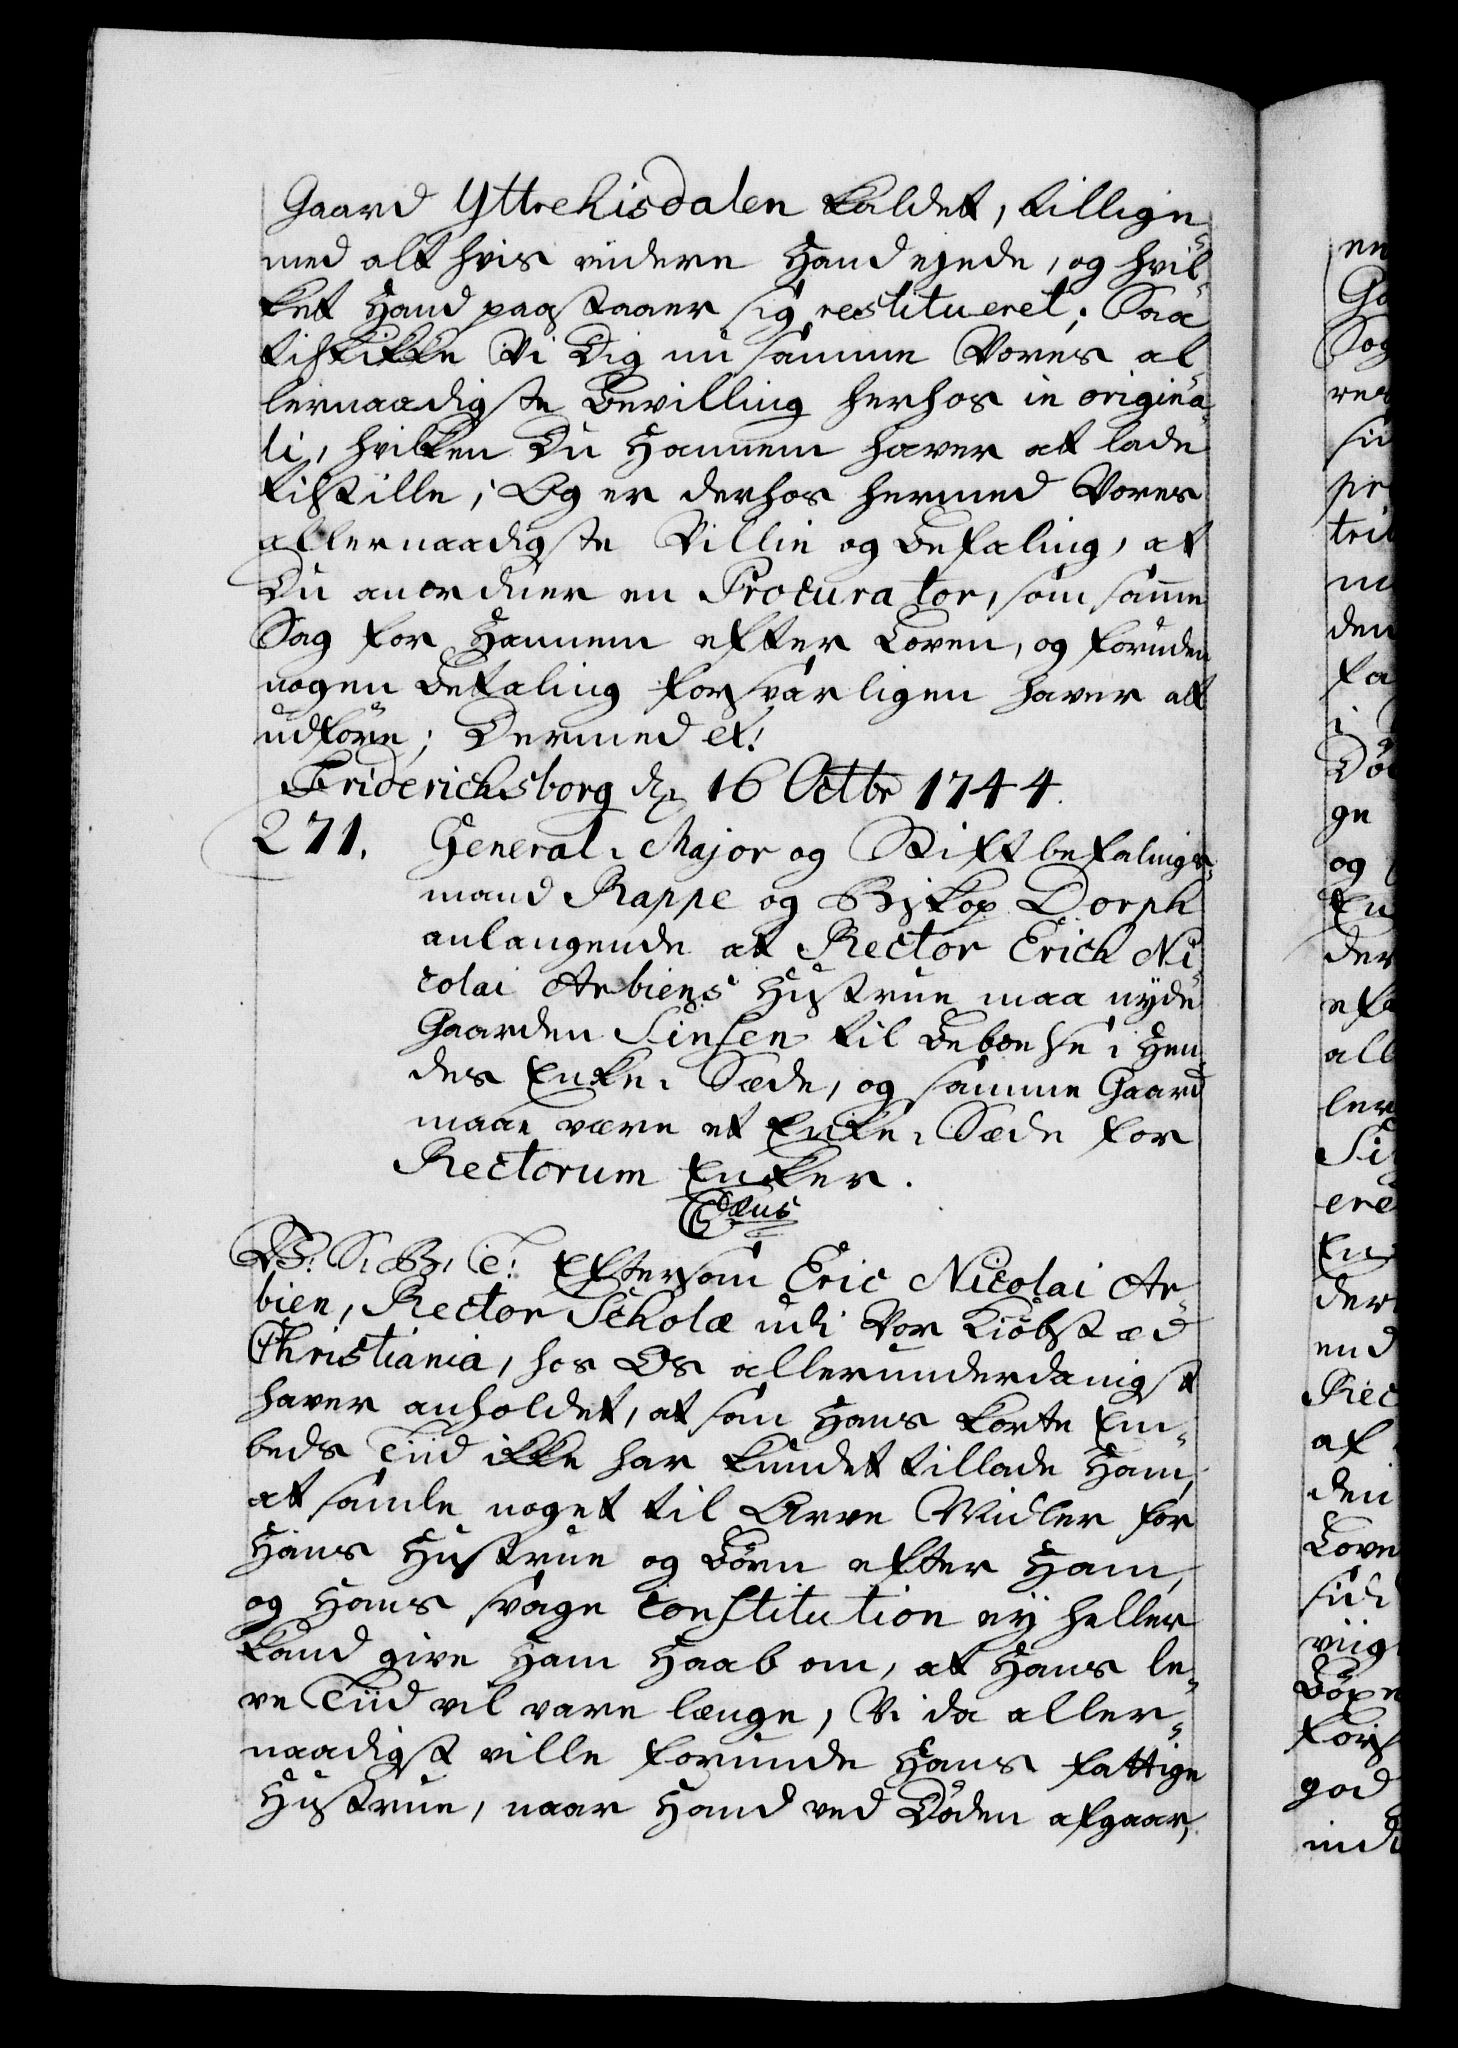 Gaard Yttrehisdalen kaldet, tillige
med alt hvis videre Hand ejede, og hvil-
ket Hand paastaaer sig restitueret; Saa
tilskikke Vi Dig nu samme Vores al-
lernaadigste Bevilling herhos in origina-
li, hvilken Du Hannem haver at lade
tilstille; Og er derhos hermed Vores
allernaadigste Villie og Befaling, at
Du anordner en Procurator, som samme
Sag for Hannem efter Loven, og foruden
nogen Betaling forsvarligen haver at
udføre; Dermed et:
Friderichsborg dn 16 Octbr 1744.
271. General-Major og Stiftbefalings-
mand Rappe og Biskop Dorph
anlangende at Rector Erich Ni-
colai Arbiens Hustrue maa nyde
Gaarden Sinsen til Beboelse i Hen-
des Enke-Sæde, og samme Gaard
maae være et Enke-Sæde for
Rectorum Enker.
C 6tus
V. S. G. T. Eftersom Eric Nicolai Ar-
bien, Rector Scholæ udi Vor Kiöbstæd
Christiania, hos Os allerunderdanigst
haver anholdet, at som Hans korte Em-
beds Tiid ikke har kundet tillade Ham,
at samle noget til Arve Midler for
Hans Hustrue og Børn efter Ham,
og Hans svage Constitution ey heller
kand give Ham Haab om, at Hans le-
ve Tiid vil vare længe, Vi da aller-
naadigst ville forunde Hans fattige
Hustrue, naar Hand ved Døden afgaar,